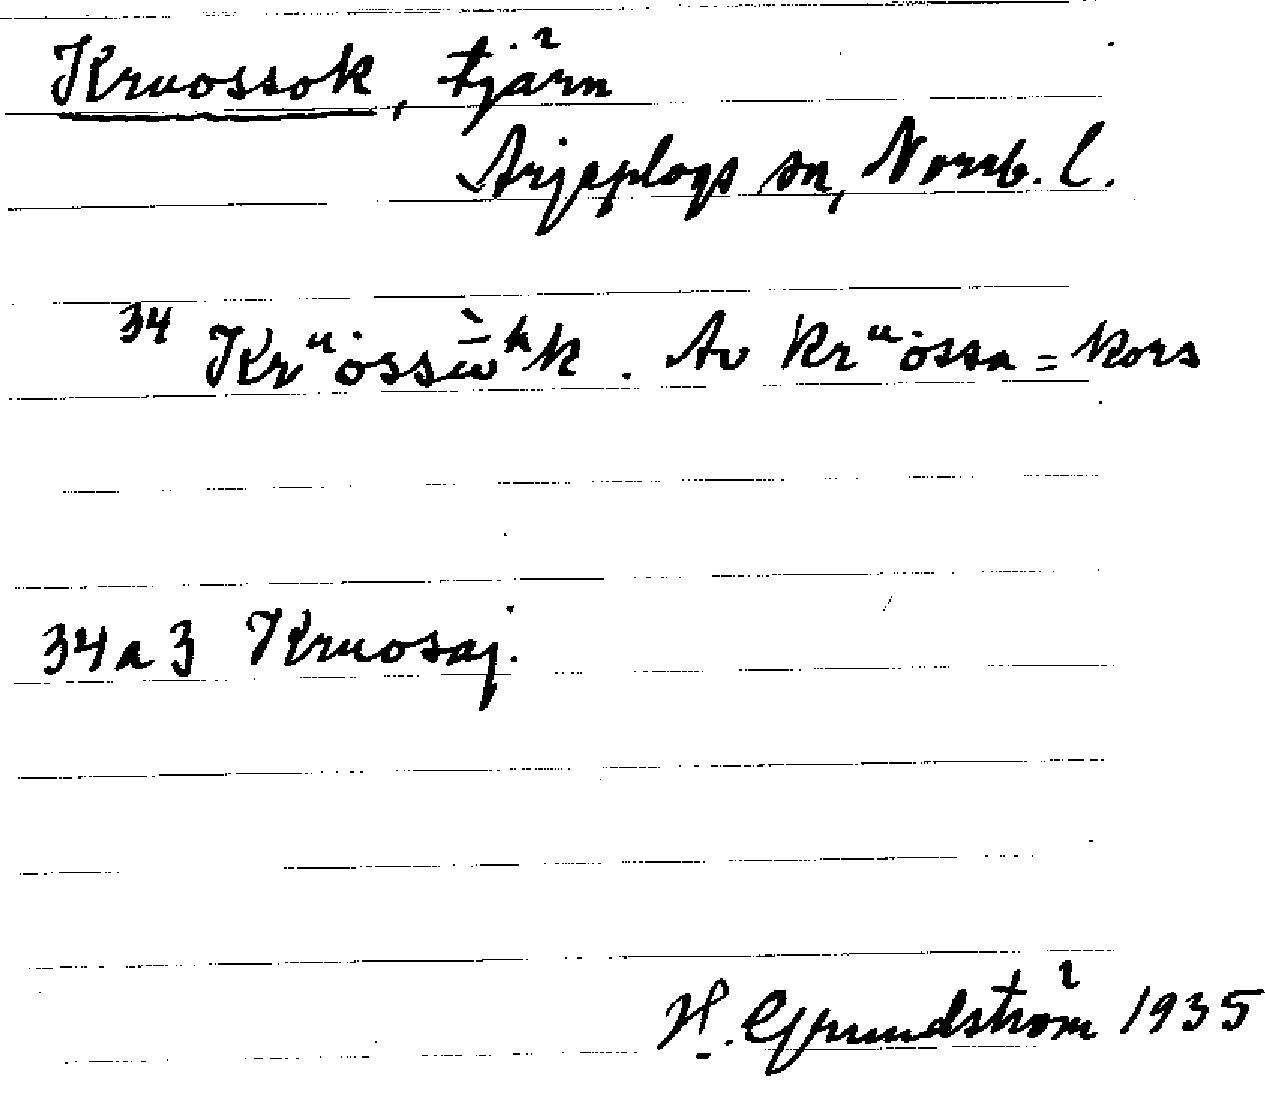 Kruossok, tjärn
Arjeplogs sn, Norrb. l.
34 Krᵘȯssω̄̀ʰk. Av krᵘȯssa = kors
34a3 Kruosaj.
H. Grundström 1935